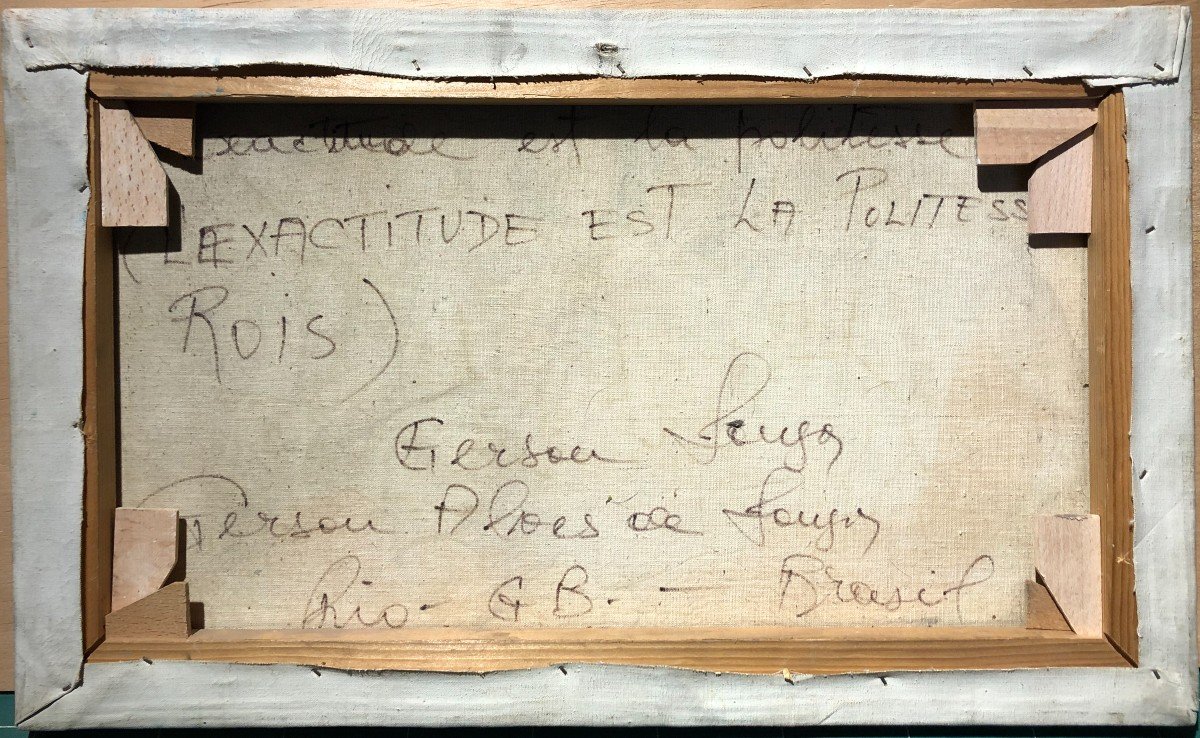 exactitude est la politesse
(L'EXACTITUDE EST LA POLITESS
ROIS)
Gerson Souza
Gerson Alves de Souza
Rio - G.B. - Brasil.